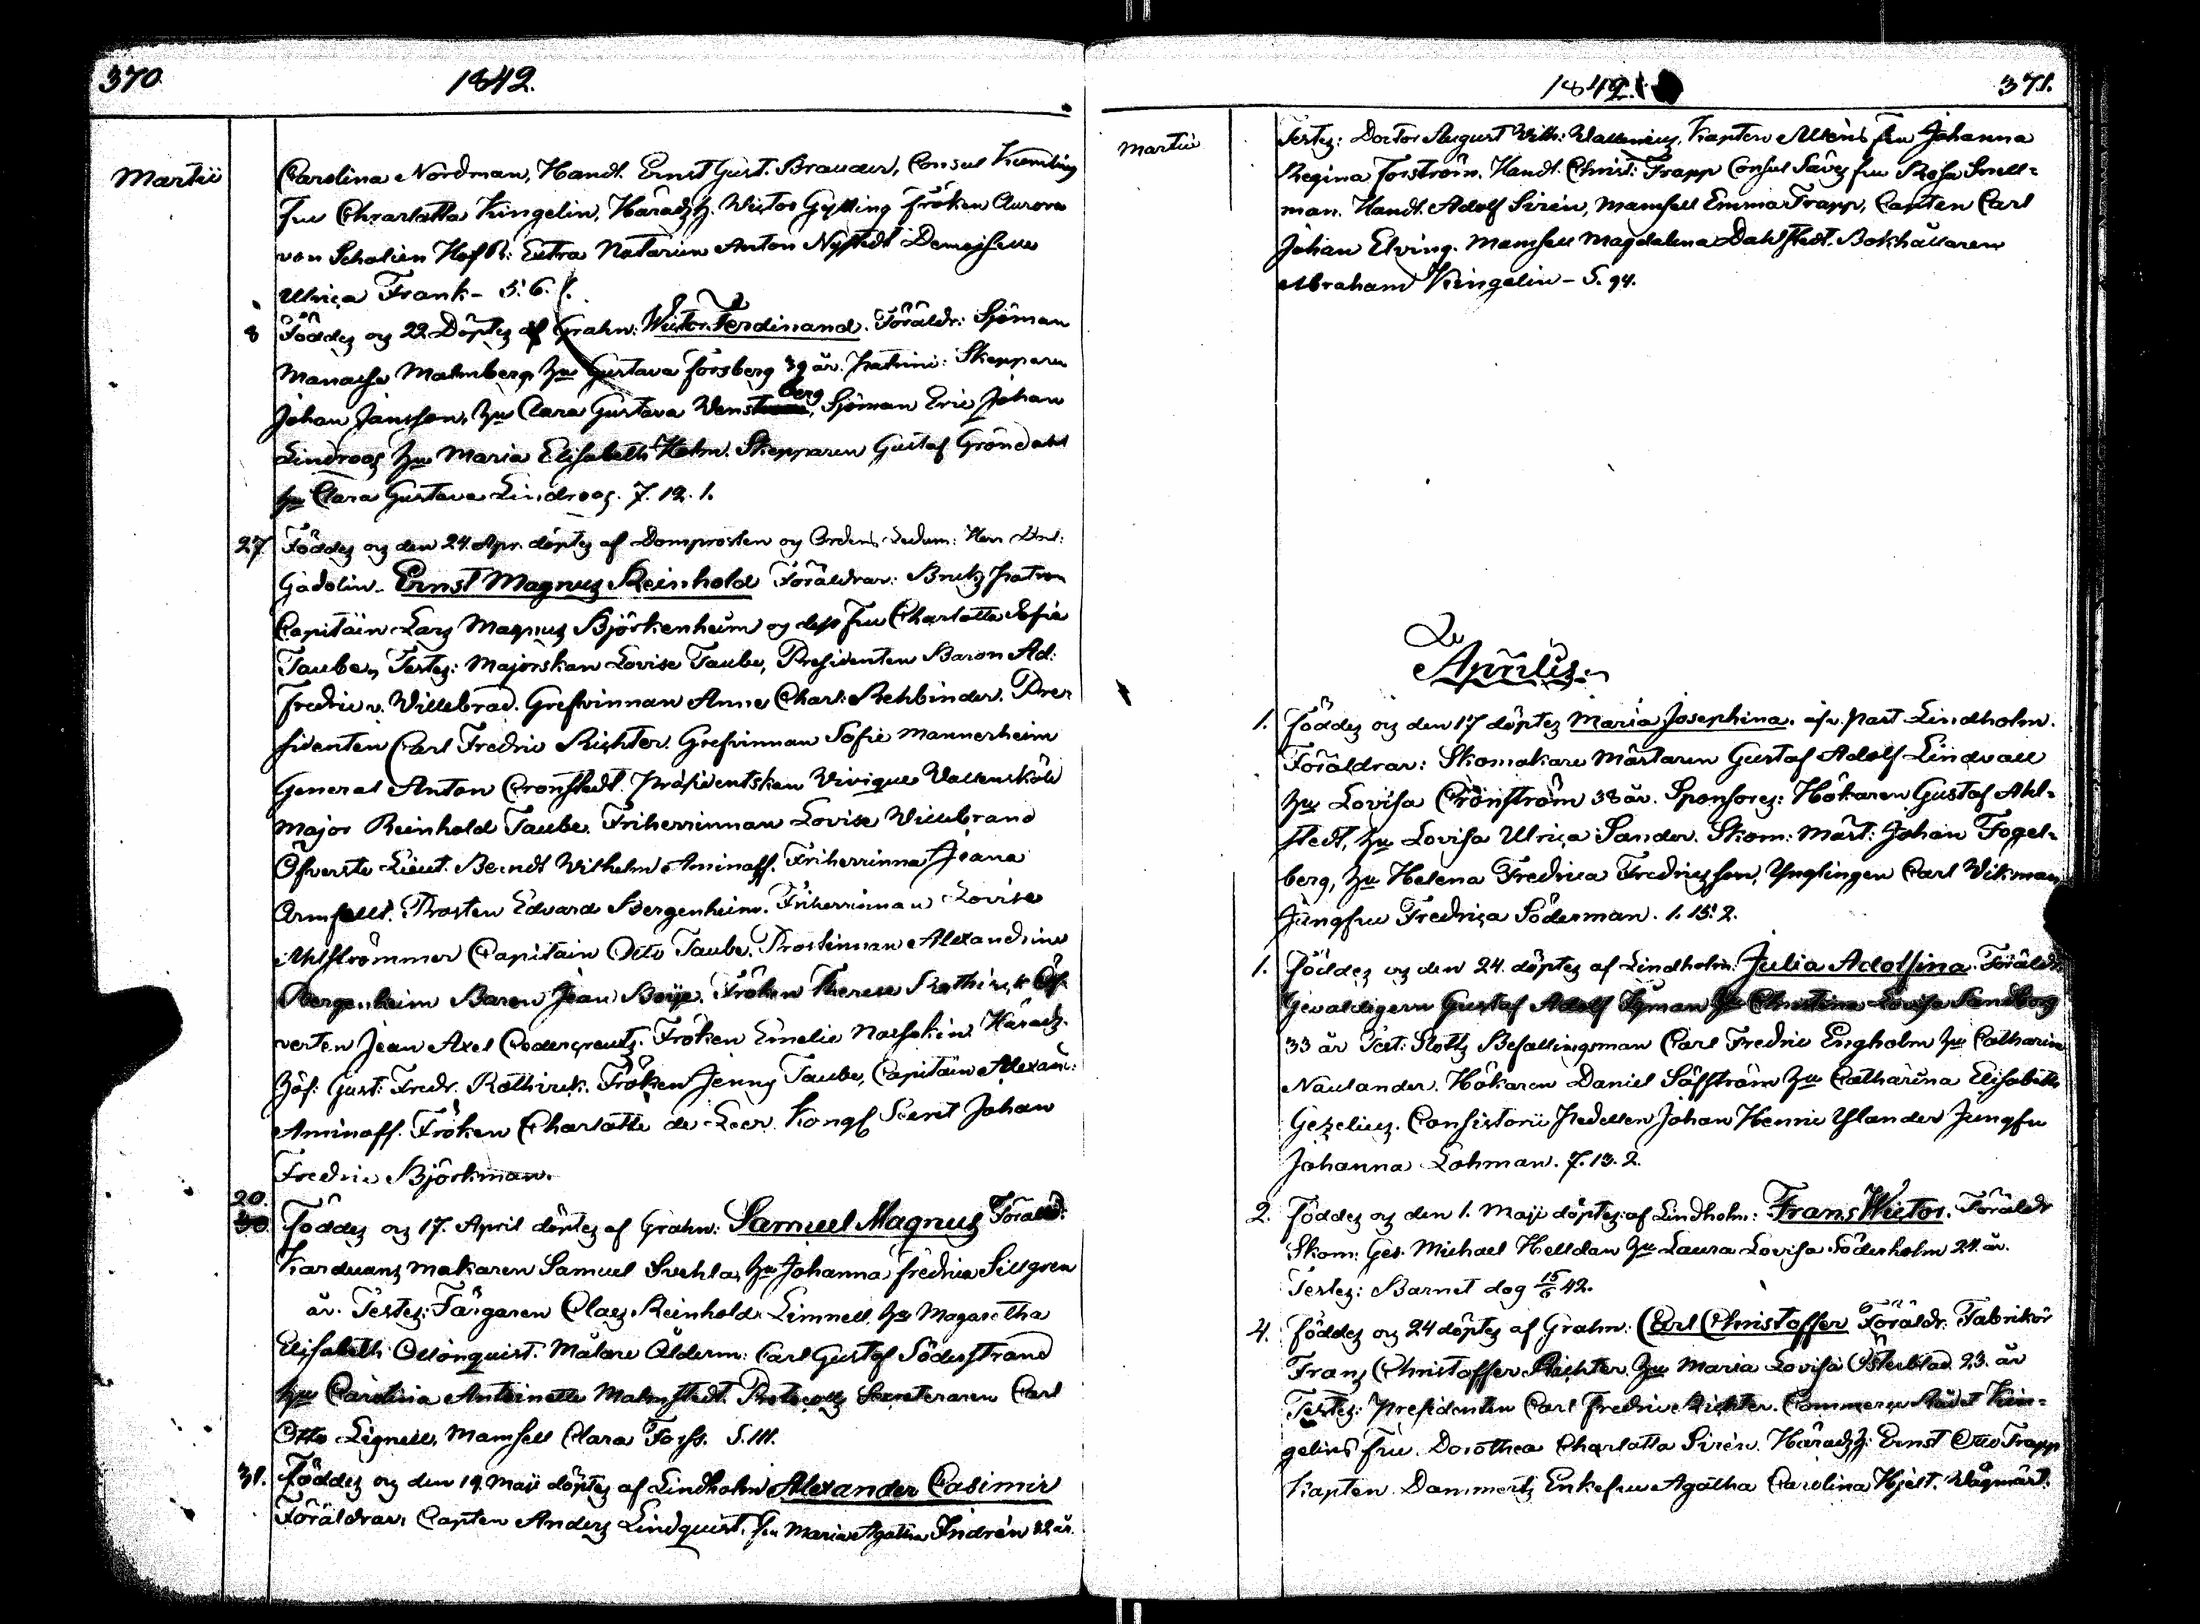 370
1842.
Martii
Carolina Nordman, Handl. Ernst Gust. Brander, Consul
fru Charlotta Kingelin, Häradsh. Victor Gylling fröken Aurora
von Schalien Hof R: Extra Notarien Anton Nystedt Demoiselle
Ulrica Frank - 5. 6.
8 Föddes og 22 Döptes af Grahn: Victor Ferdinand. Föräldr: Sjöman
Manasse Malmberg, hu Gustava Forsberg 39 år. Patrini: Skepparen
Johan Jansson, hu Clara Gustava Wenstberg, Sjöman Eric Johan
Lindroos hu Maria Elisabeth Holm. Skepparen Gustaf Gröndahl
hu Clara Gustava Lindroos. 7. 12. 1.
27. Föddes og den 24. Apr. döptes af Domprosten og Ordens Ledam: Herr
Gadolin. Ernst Magnus Reinhold Föräldrar: Bruks Patron
Capitain Lars Magnus Björkenheim og dess fru Charlotta Sofia
Taube, Testes: Majorskan Lovise Taube, Presidenten Baron Ad:
Fredric v. Willebrad. Grefvinnan Anne Charl: Rehbinder. Pre-
sidenten Carl Fredric Richter. Grefvinnan Sofie Mannerheim
General Anton Cronstedt. Presidentskan Vivique Wallensköld
Major Reinhold Taube. Friherrinnan Lovise Willebrand
Öfverste Lieut. Berndt Wilhelm Aminoff. Friherrinna Jeana
Armfellt. Prosten Edvard Bergenheim. Friherrinnan Lovise
Ahlströmmer Capitain Otto Taube. Prostinnan Alexandrine
Bergenheim Baron Jean Boije. Fröken Therese Rothkirk Öf-
versten Jean Axel Cedercreutz. Fröken Emelie Nassokin. Härads
höf: Gust: Fredr. Rothkirk. Fröken Jenny Taube, Capitain Alexan:
Aminoff. Fröken Charlotte de Geer. Kongl Secret Johan
Fredric Björkman.
20.
30 Föddes og 17. April döptes af Grahn: Samuel Magnus Föräld:
Karduans makaren Samuel Svehla, hu Johanna Fredrica Sillgren
år. Testes: Färgaren Claes Reinhold Limnell, hu Magaretha
Elisabeth Ollonquist. Målare Ålderm: Carl Gustaf Söderstrand
hu Carolina Antoinette Malmstedt. Protocolls Secreteraren Carl
Otto Lignell, Mamsell Clara Forss. 5. 111.
31. Föddes og den 19. Maji döptes af Lindholm Alexander Casimir
Föräldrar, Capten Anders Lindquist, fru Maria Agatha Indrén 22 år.
1842.
371.
Martii
Testes: Doctor August Wilh: Wallenius, Kapten Alléns fru Johanna
Regina Forström. Handl. Christ: Trapp Consul fru Rosa Snell-
man. Handl. Adolf Sirén, Mamsell Emma Trapp, Capten Carl
Johan Elving. Mamsell Magdalena Dahlstedt. Bokhållaren
Abraham Kingelin - 5. 94.
Aprilis.
1. Föddes og den 17 döptes Maria Josephina. af v. Past Lindholm.
Föräldrar: Skomakare Mästaren Gustaf Adolf Lindvall
hu Lovisa Crönström 38 år. Sponsores: Hökaren Gustaf Ahl-
stedt, hu Lovisa Ulrica Sander. Skom: Mäst: Johan Fogel-
berg, hu Helena Fredrica Fredricsson, Ynglingen Carl Wikman
Jungfru Fredrica Söderman. 1. 15. 2.
1. Föddes og den 24. döptes af Lindholm: Julia Adolfina. Föräldr:
Gevaldigern Gustaf Adolf hu Christina Lovisa Sandberg
33 år Test: Slotts Befallingsman Carl Fredric Engholm hu Catharina
Naulander. Hökaren Daniel Säfström hu Catharina Elisabeth
Gezelius. Consistorii Pedellen Johan Henric Ylander Jungfru
Johanna Lohman. 7. 13. 2.
2. Föddes og den 1. Maji döptes af Lindholm: Frans Victor. Föräldr
Skom: Ges. Michael Helldan hu Laura Lovisa Söderholm 24. år.
Testes: Barnet dog 15/6 42.
4. Föddes og 24 döptes af Grahn: Carl Christoffer Föräldr: Fabrikör
Frans Christoffer Richter hu Maria Lovisa Österblad. 23. år
Testes: Presidenten Carl Fredric Richter. Commerce Rådet Kin-
gelins fru. Dorothea Charlotta Sirén. Häradsh: Ernst Otto Trapp
Kapten Dammerts Enkefru Agatha Carolina Hjelt. Vågmäst: